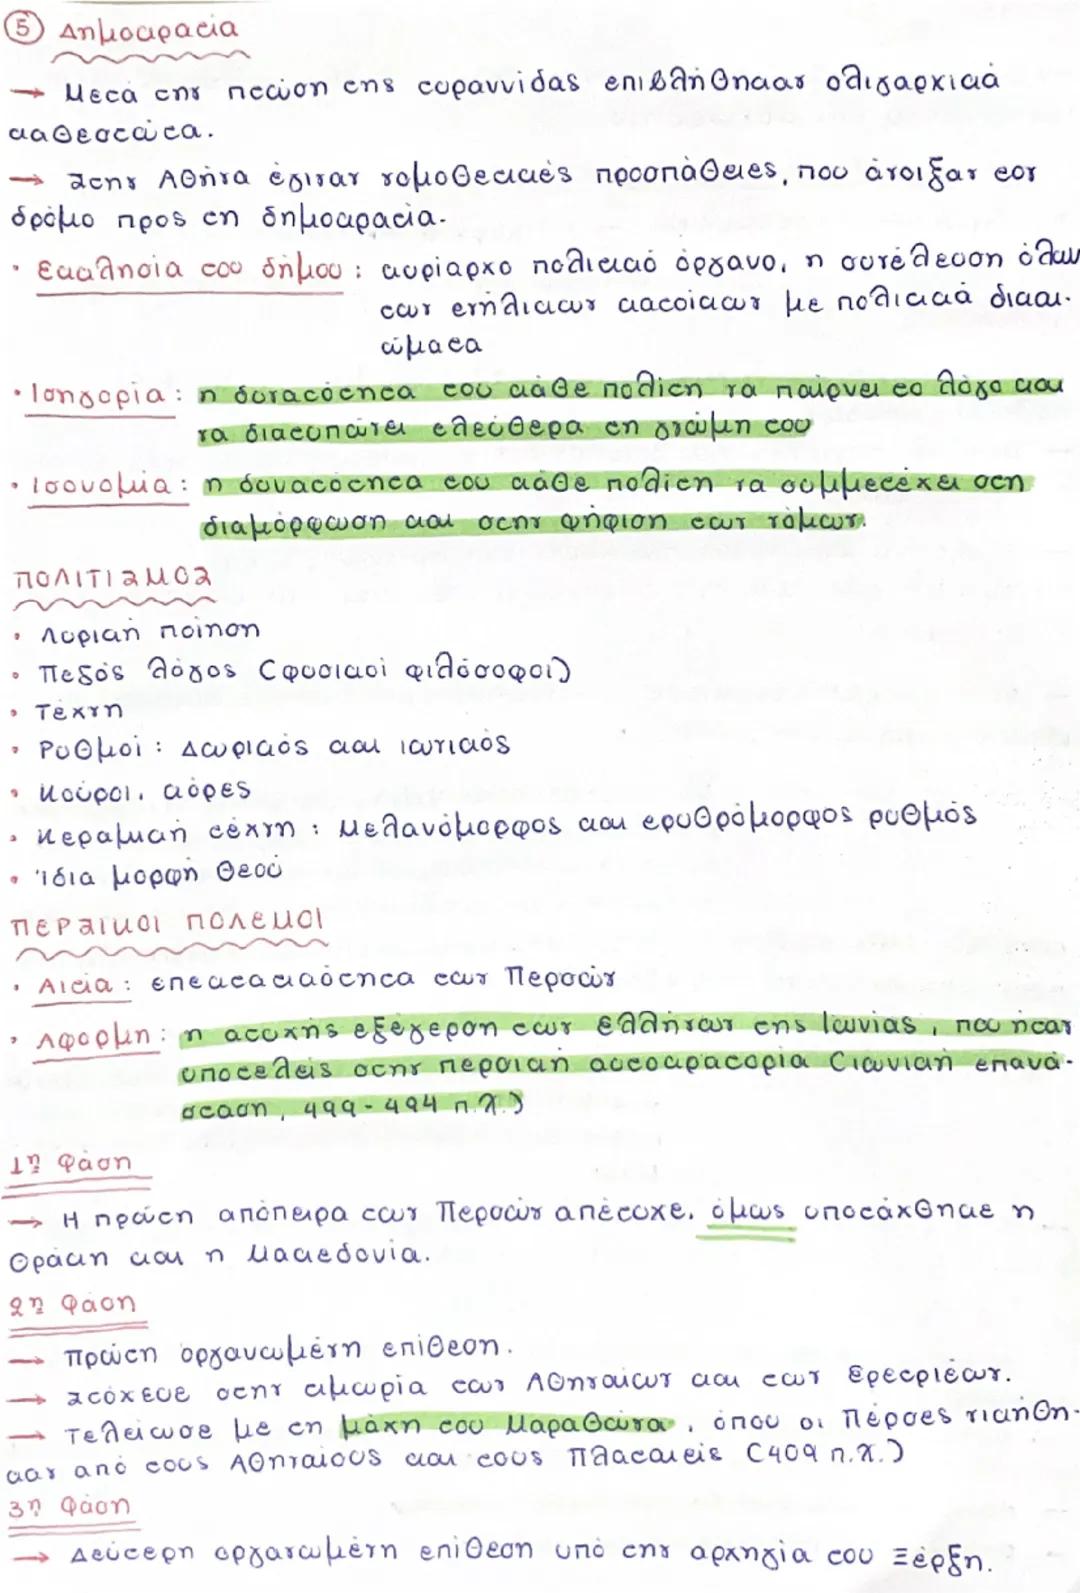 5 Δημοκρατία
→ Μετά την πτώση της τυραννίδας επιβλήθηκαν ολιγαρχικά
καθεστώτα.
→ Στην Αθήνα έγιναν νομοθετικές προσπάθειες, που άνοιξαν τον
δρόμο προς τη δημοκρατία.
· Εκκλησία του δήμου : κυρίαρχο πολιτικό όργανο, η συνέλευση όλων
των ενήλικων κατοίκων με πολιτικά δικαι-
ώματα
· Ισηγορία : η δυνατότητα του κάθε πολίτη να παίρνει το λόγο και
να διατυπώνει ελεύθερα τη γνώμη του
· Ισονομία : η δυνατότητα του κάθε πολίτη να συμμετέχει στη
διαμόρφωση και στην ψήφιση των νόμων.
ΠΟΛΙΤΙΣΜΟΣ
· Λυρική ποίηση
· Πεζός λόγος (φυσικοί φιλόσοφοι)
· Τέχνη
· Ρυθμοί : Δωρικός και ιωνικός
· Κούροι, κόρες
· Κεραμική τέχνη : Μελανόμορφος και ερυθρόμορφος ρυθμός
· Ίδια μορφή θεού
ΠΕΡΣΙΚΟΙ ΠΟΛΕΜΟΙ
· Αιτία : επεκτατικότητα των Περσών
· Αφορμή : η ατυχής εξέγερση των Ελλήνων της Ιωνίας, που ήταν
υποτελείς στην περσική αυτοκρατορία (ιωνική επανά-
σταση, 499-494 π.Χ.)
1η Φάση
→ Η πρώτη απόπειρα των Περσών απέτυχε, όμως υποτάχθηκε η
Θράκη και η Μακεδονία.
2η Φάση
→ Πρώτη οργανωμένη επίθεση.
→ Στόχευε στην τιμωρία των Αθηναίων και των Ερετριέων.
→ Τελείωσε με τη μάχη του Μαραθώνα, όπου οι Πέρσες νικήθη-
καν από τους Αθηναίους και τους Πλαταιείς (409 π.Χ.)
3η Φάση
→ Δεύτερη οργανωμένη επίθεση υπό την αρχηγία του Ξέρξη.